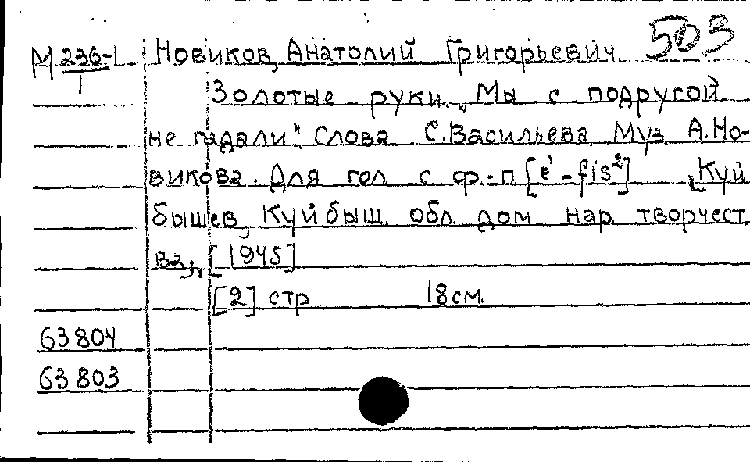 503
М 236-1 Новиков, Анатолий Григорьевич
1 Золотые руки. „Мы с подругой
не гадали". Слова С. Васильева Муз А. Но-
викова. Для гол с ф.-п [e¹-fis²] [Куй
бышев, Куйбыш. обл дом нар творчест
ва,] [1945]
[2] стр 18 см.
63804
63803